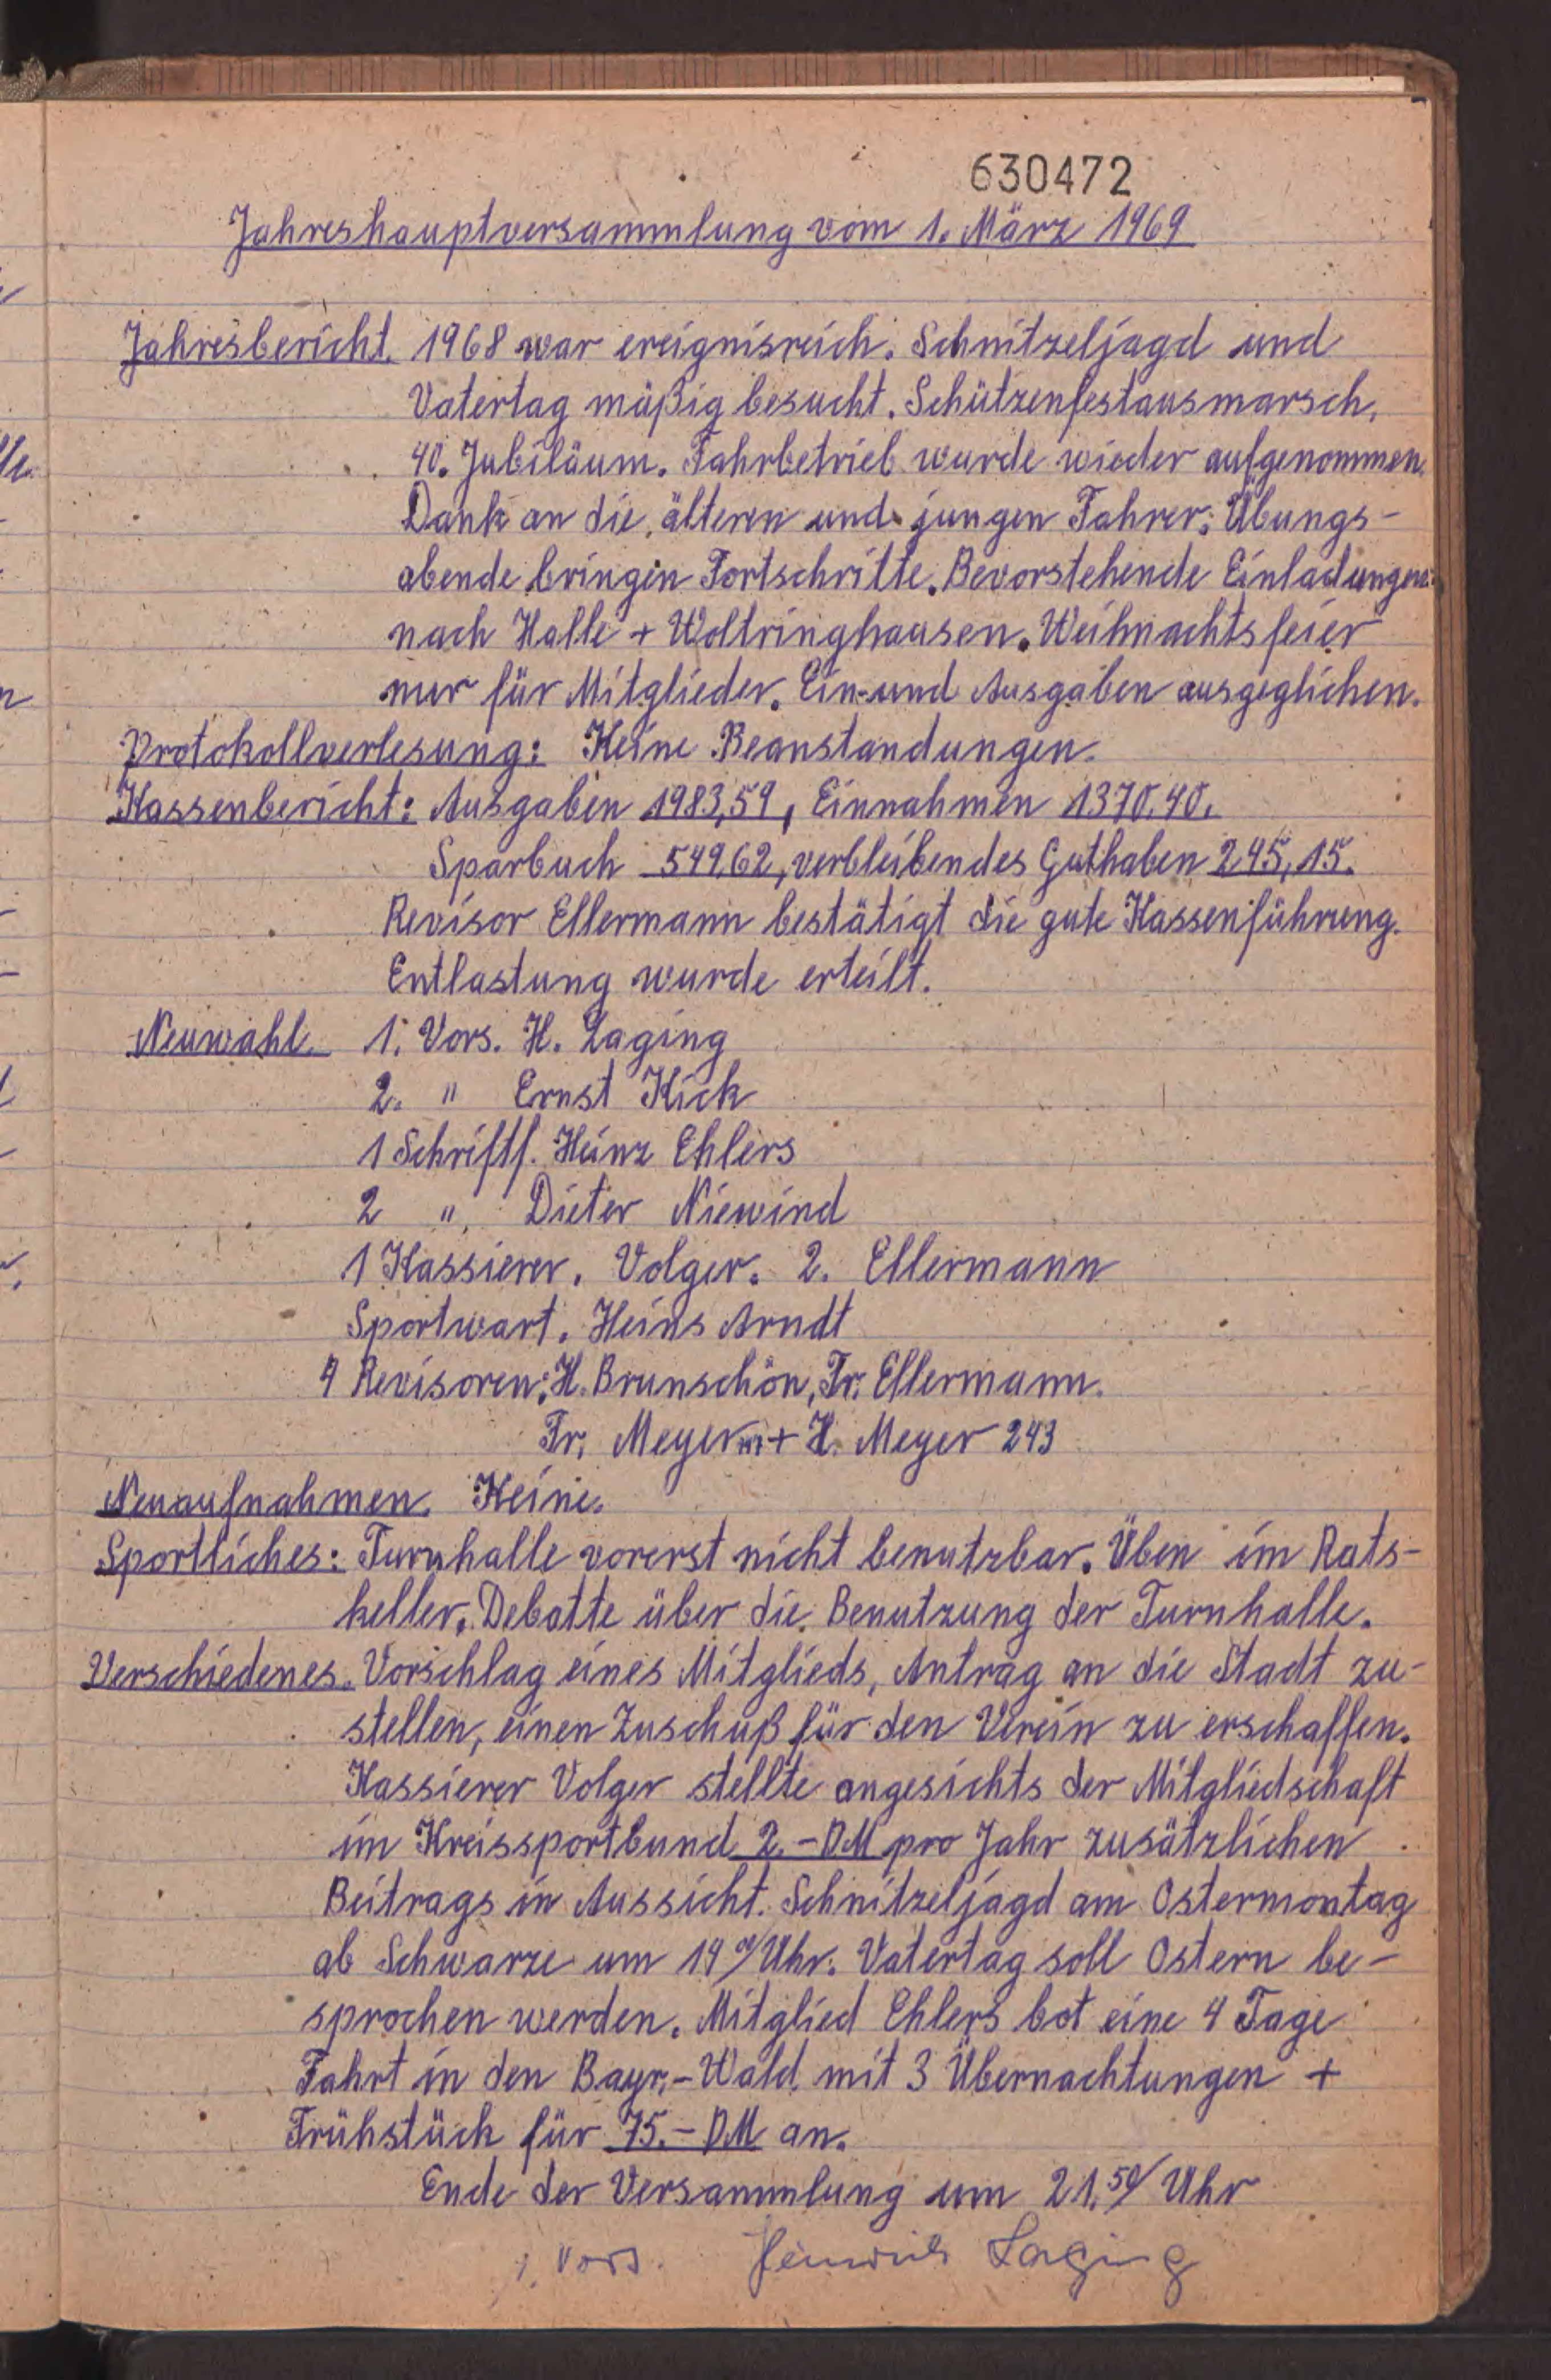 630472
Jahreshauptversammlung vom 1. März 1969
Jahresbericht. 1968 war ereignisreich. Schnitzeljagd und
Vatertag mäßig besucht. Schützenfestausmarsch,
40. Jubiläum. Fahrbetrieb wurde wieder aufgenommen.
Dank an die älteren und jungen Fahrer. Übungs-
abende bringen Fortschritte. Bevorstehende Einladungen
nach Halle + Woltringhausen. Weihnachtsfeier
nur für Mitglieder. Ein-und Ausgaben ausgeglichen.
Protokollverlesung: Keine Beanstandungen.
Kassenbericht: Ausgaben 1983,59, Einnahmen 1370,40.
Sparbuch 549,62, verbleibendes Guthaben 245,15.
Revisor Ellermann bestätigt die gute Kassenführung.
Entlastung wurde erteilt.
Neuwahl 1. Vors. H. Laging
2. " Ernst Kick
1 Schriftf. Heinz Ehlers
2 " Dieter Niewind
1 Kassierer. Volger. 2. Ellermann
Sportwart. Heins Arndt
4 Revisoren: H. Brunschön, Fr. Ellermann.
Fr. Meyer + H. Meyer 243
Neuaufnahmen. Keine.
Sportliches: Turnhalle vorerst nicht benutzbar. Üben im Rats-
keller. Debatte über die Benutzung der Turnhalle.
Verschiedenes. Vorschlag eines Mitglieds, Antrag an die Stadt zu-
stellen, einen Zuschuß für den Verein zu erschaffen.
Kassierer Volger stellte angesichts der Mitgliedschaft
im Kreissportbund 2.-DM pro Jahr zusätzlichen
Beitrags in Aussicht. Schnitzeljagd am Ostermontag
ab Schwarze um 14 Uhr. Vatertag soll Ostern be-
sprochen werden. Mitglied Ehlers bot eine 4 Tage
Fahrt in den Bayr.-Wald mit 3 Übernachtungen +
Frühstück für 75.-DM an.
Ende der Versammlung um 21.50 Uhr
1. Vors. Heinrich Laging